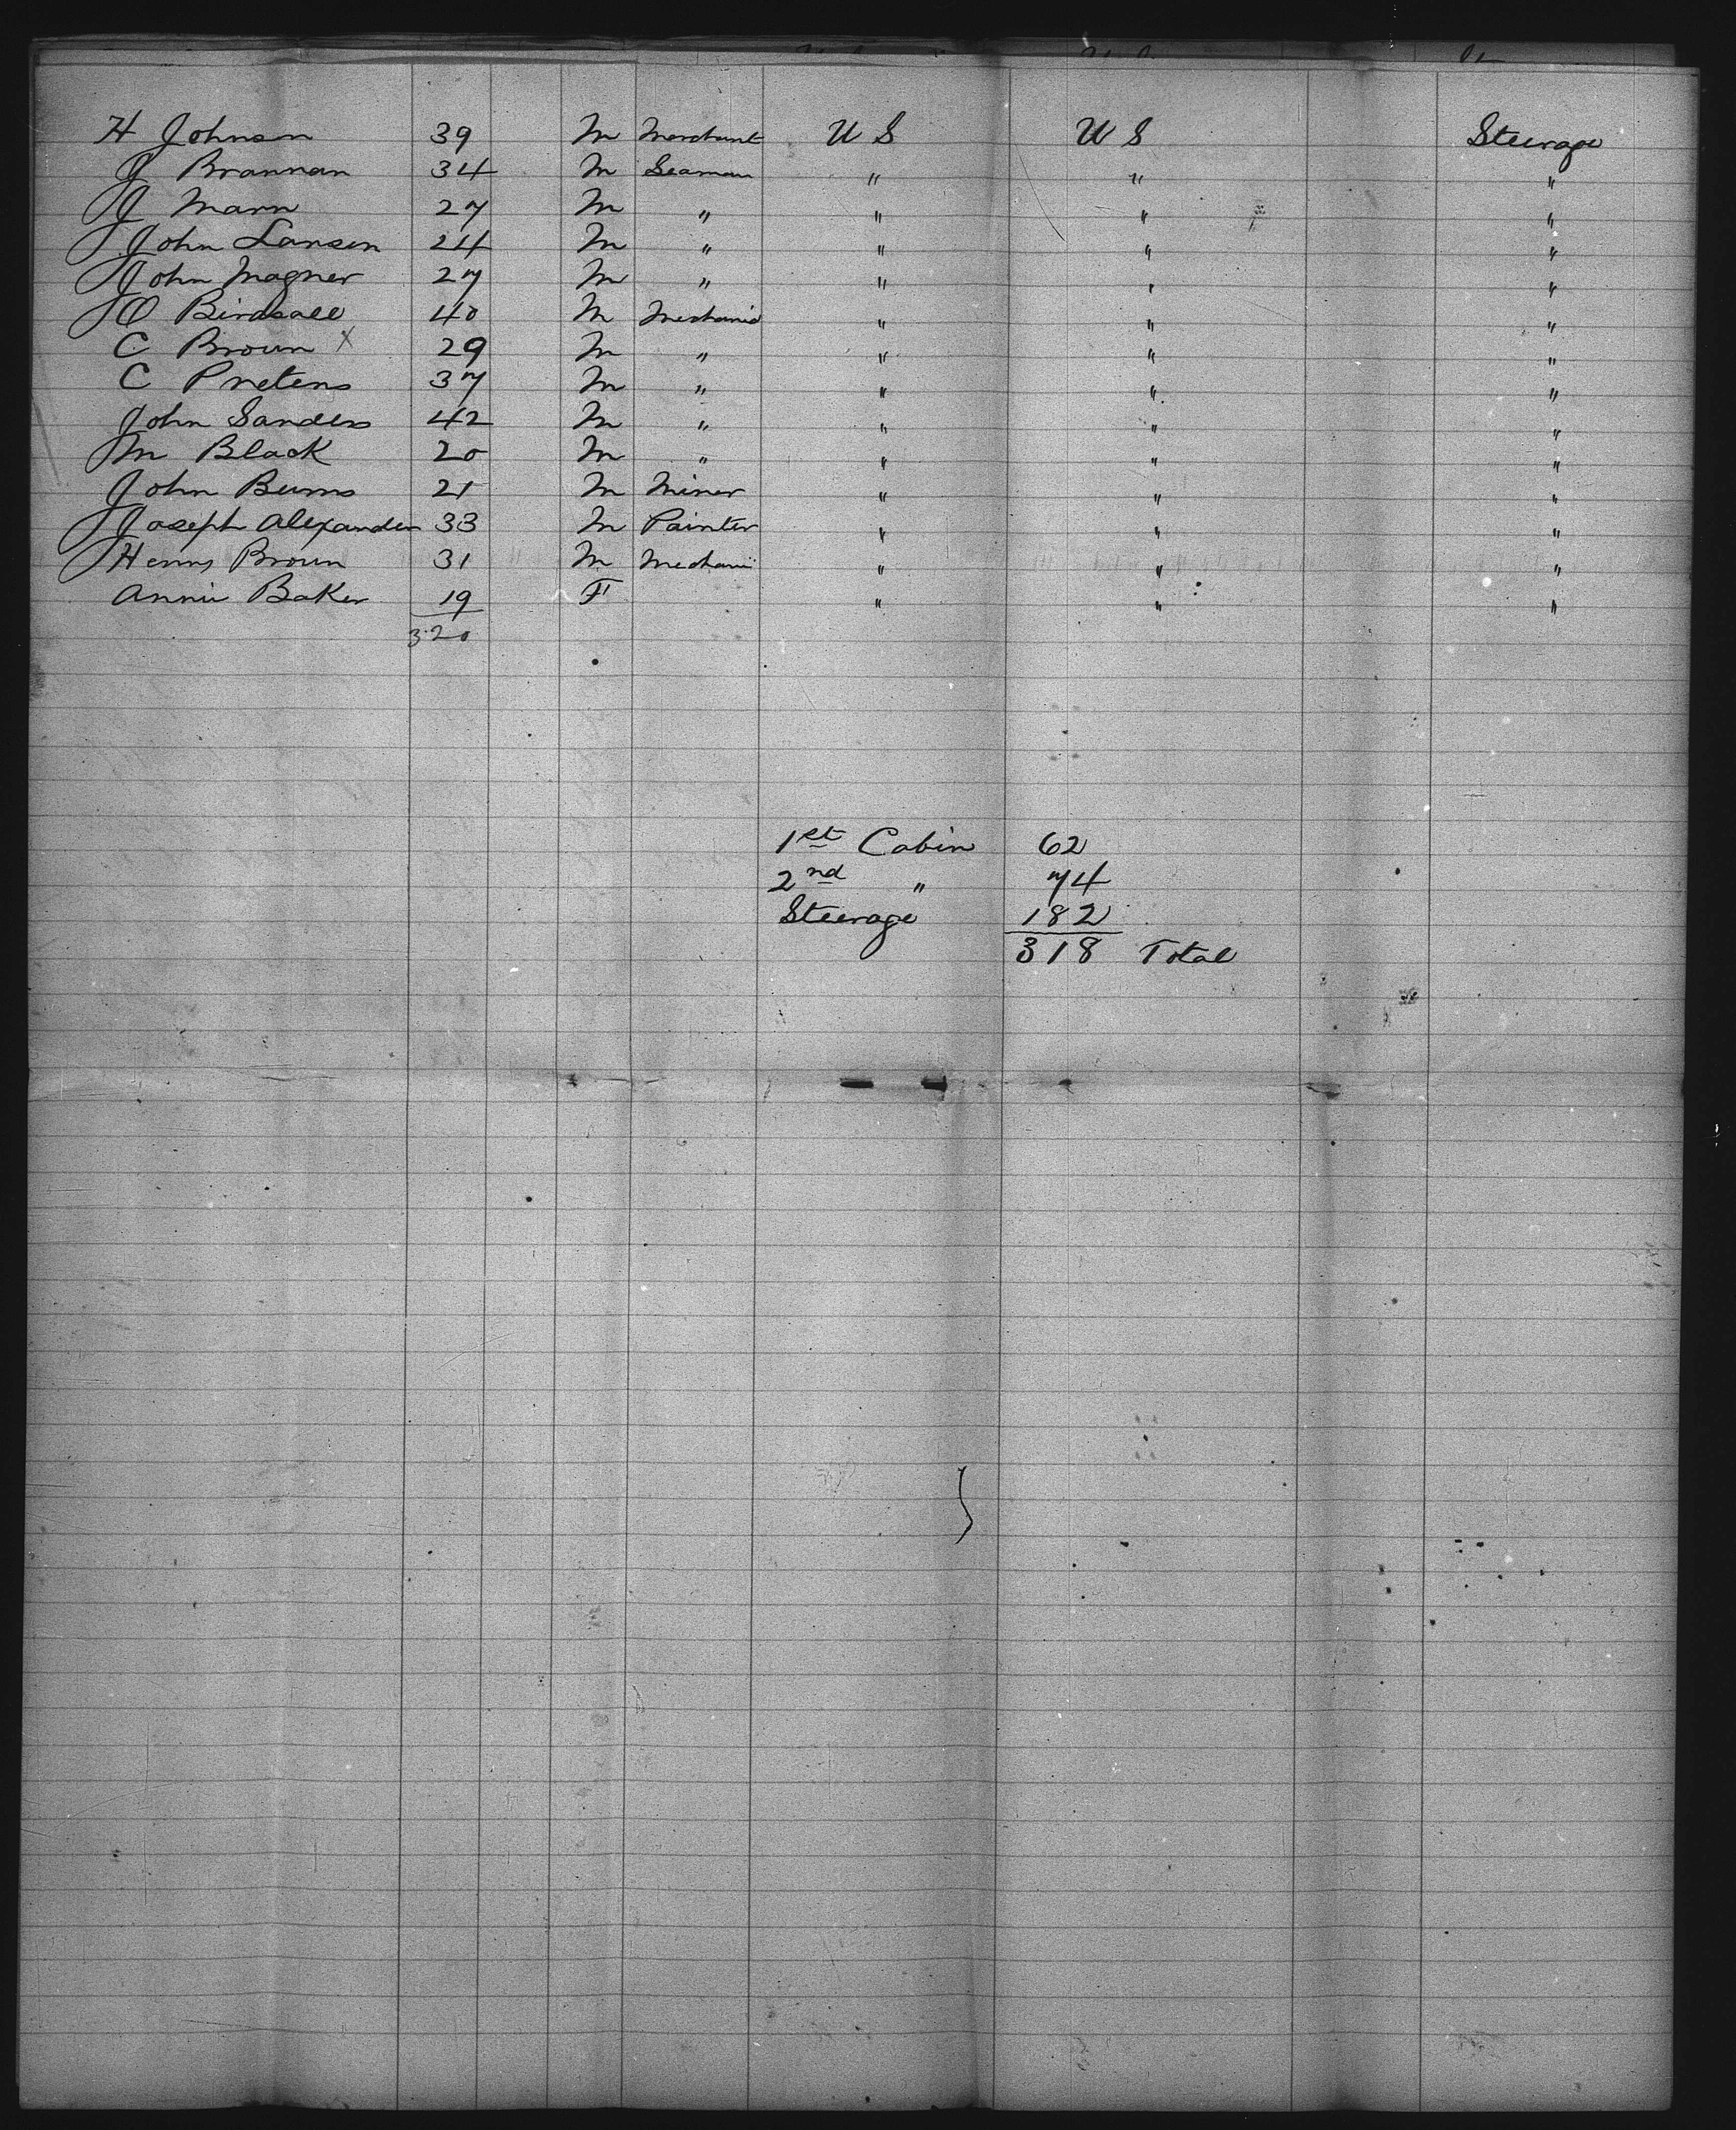 H Johnson 39 M Merchant U S U S Steerage
J Brannan 34 M Seaman " " "
J Mann 27 M " " " "
John Lansen 24 M " " " "
John Magner 27 M " " " "
O Birdsall 40 M Mechanic " " "
C Brown x 29 M " " " "
C 37 M " " " "
John Sanders 42 M " " " "
M Black 20 M " " " "
John Burns 21 M Miner " " "
Joseph Alexander 33 M Painter " " "
Henry Brown 31 M Mechanic " " "
Annie Baker 19 F " " "
320
1st Cabin 62
2nd " 74
Steerage 182
318 Total